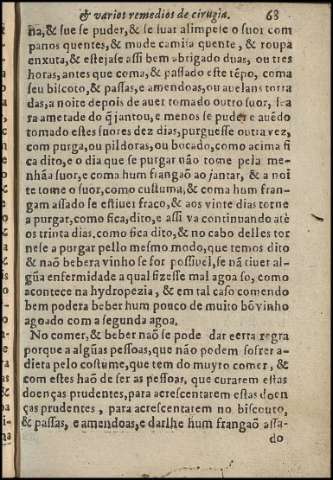 & varios remedios de cirugia. 68
ña, & sue se puder, & se suar alimpese o suor com
panos quentes, & mude camisa quente, & roupa
enxuta, & estejase assi bem abrigado duas, ou tres
horas, antes que coma, & passado este têpo, coma
seu biscoto, & passas, e amendoas, ou avelans torra
das, a noite depois de auer tomado outro suor,
ra ametade do q̃ jantou, e menos se puder e auẽdo
tomado estes suores dez dias, purguesse outra vez,
com purga, ou pildoras, ou bocado, como acima fi
ca dito, e o dia que se purgar não tome pela me-
nhãa suor, e coma hum frangaõ ao jantar, & a noi
te tome o suor, como custuma, & coma hum fran-
gam assado se estiuer fraco, & aos vinte dias torne
a purgar, como fica, dito, e assi va continuando atè
os trinta dias, como fica dito, & no cabo delles tor
nese a purgar pello mesmo modo, que temos dito
& naõ bebera vinho se for possiuel, se nã tiuer al-
gũa enfermidade a qual fizesse mal agoa so, como
acontece na hydropezia, & em tal caso comendo
bem podera beber hum pouco de muito bõ vinho
agoado com a segunda agoa.
No comer, & beber naõ se pode dar certa regra
porque a algũas pessoas, que não podem sofrer a
dieta pelo costume, que tem do muyto comer, &
com estes haõ de ser as pessoas, que curarem estas
doenças prudentes, para acrescentarem estas doen
ças prudentes, para acrescentarem no biscouto,
& passas, e amendoas, e darlhe hum frangaõ assa-
do